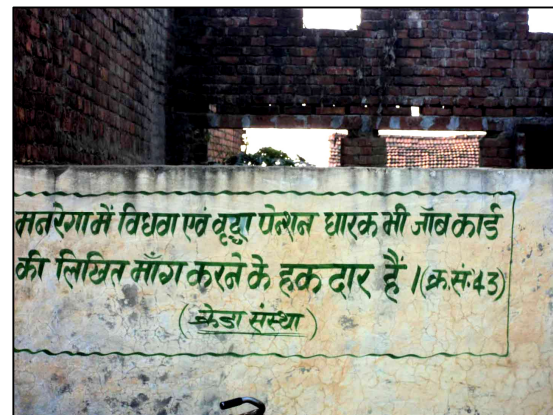 मनरेगा में विधवा एवं वृद्धा पेन्शन धारक भी जॉब कार्ड
की लिखित माँग करने के हक दार हैं । (क्र.सं:43)
(क्रेडा संस्था)